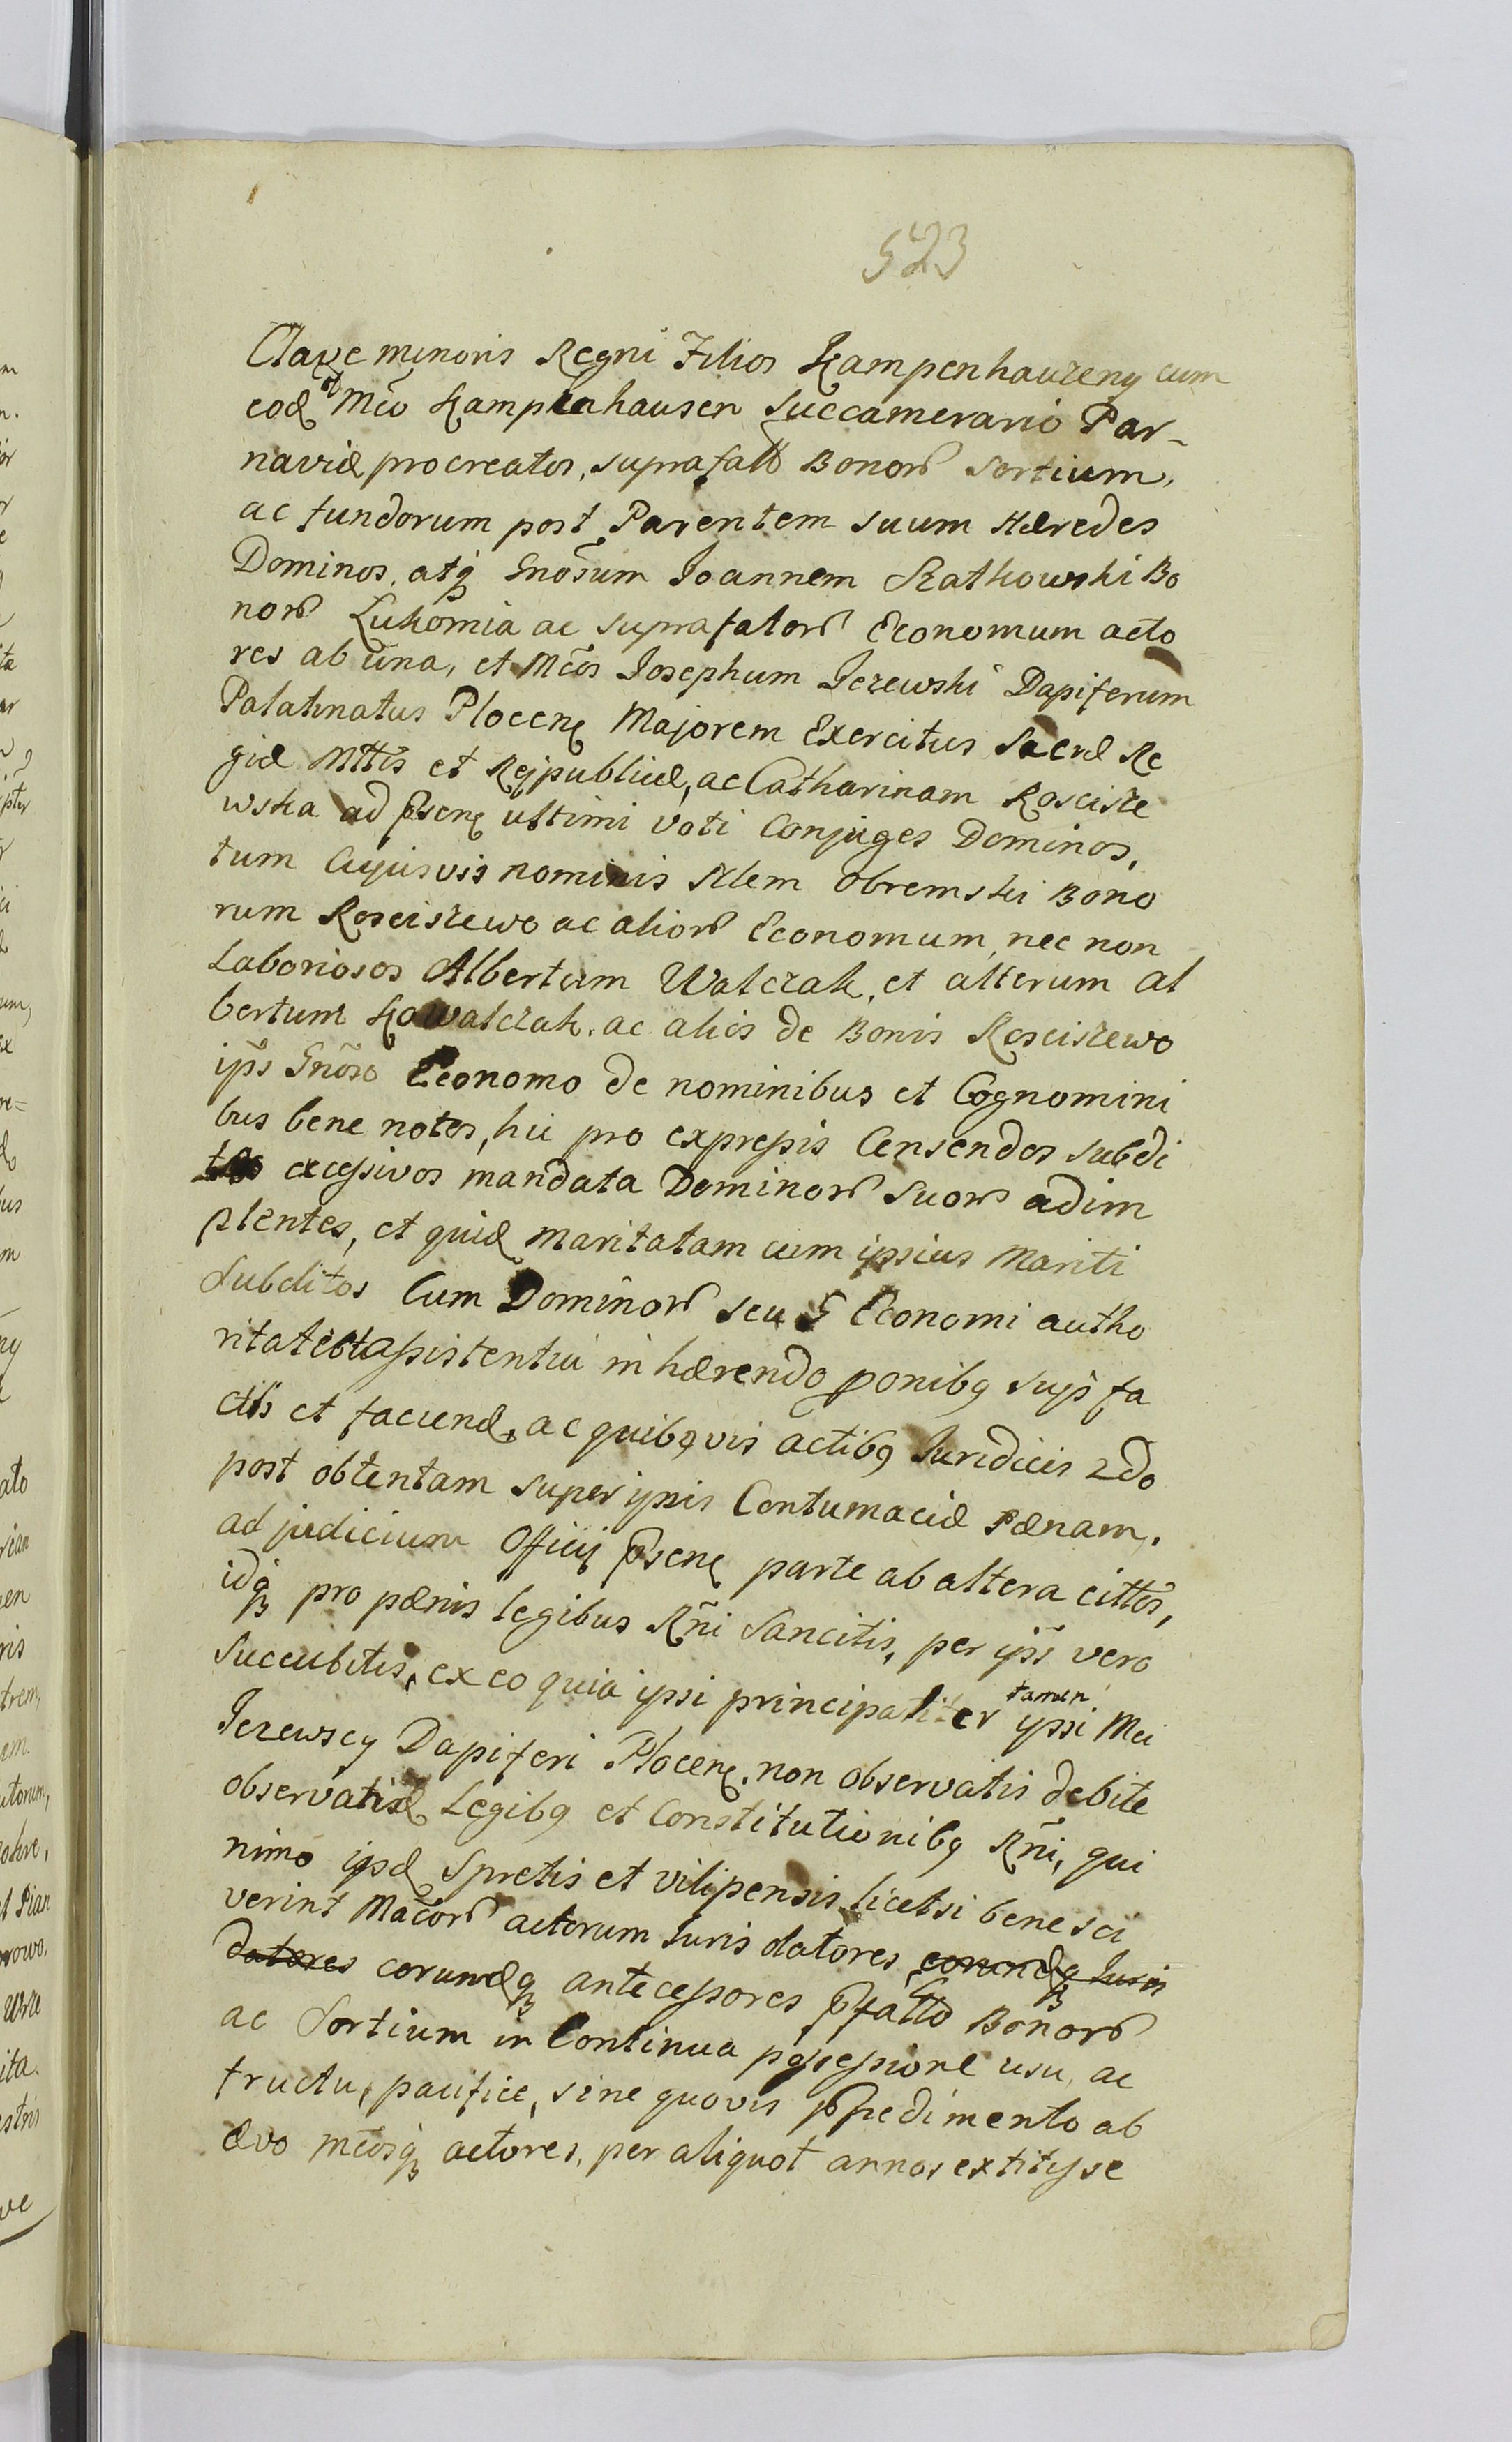 523
Clavae minoris Regni Filios Kampenhauzeny cum
eod Mco Kampenhausen Succamerario Par-
naviae procreatos, suprafatt Bonor Sortium,
ac fundorum post Parentem suum Haeredes
Dominos, atq Gnosum Joannem Szatkowski Bo
nor Lukomia ac suprafator Economum acto
res ab una, et Mcos Josephum Jezewski Dapiferum
Palatinatus Plocen Majorem Exercitus Sacrae Re
giae Mttis et Reipublicae, ac Catharinam Rosciszе
wska ad psens ultimi voti Conjuges Dominos,
tum Cujusvis nominis Nlem Obremski Bono
rum Rosciszewo ac alior Economum, nec non
Laboriosos Albertum Walczak, et alterum Al
bertum Kowalczak, ac alios de Bonis Rosciszewo
ips Gnoso Economo de nominibus et Cognomini
bus bene notos, hic pro expressis Censendos subdi
tos excessivos mandata Dominor suor adim
plentes, et quid maritatam cum ipsius Mariti
Subditos Cum Dominor seu G Economi autho
ritate et assistentia inhaerendo ponibq sups fa
ctis et faciend, ac quibqvis actibq Juridicis 2do
post obtentam super ipsis Contumaciae Paenam,
ad judicium Officij psens parte ab altera cittos,
idq pro paenis legibus Rni Sancitis, per ips vero
succubitis, ex eo quia ipsi principaliter tamen ipsi Mci
Jezewscy Dapiferi Plocen, non observatis debite
observatis Legibq et Constitutionibq Rni, qui
nimo ipsae Spretis et vilipensis, licetsi bene sci
verint Macor actorum Juris datores eorundq Juris
datores eorundq antecessores pfatto Bonor
ac Sortium in Continua possessione usu, ac
fructu, pacifice, sine quovis ppedimento ab
aevo mcosq actores, per aliquot annos extitysse